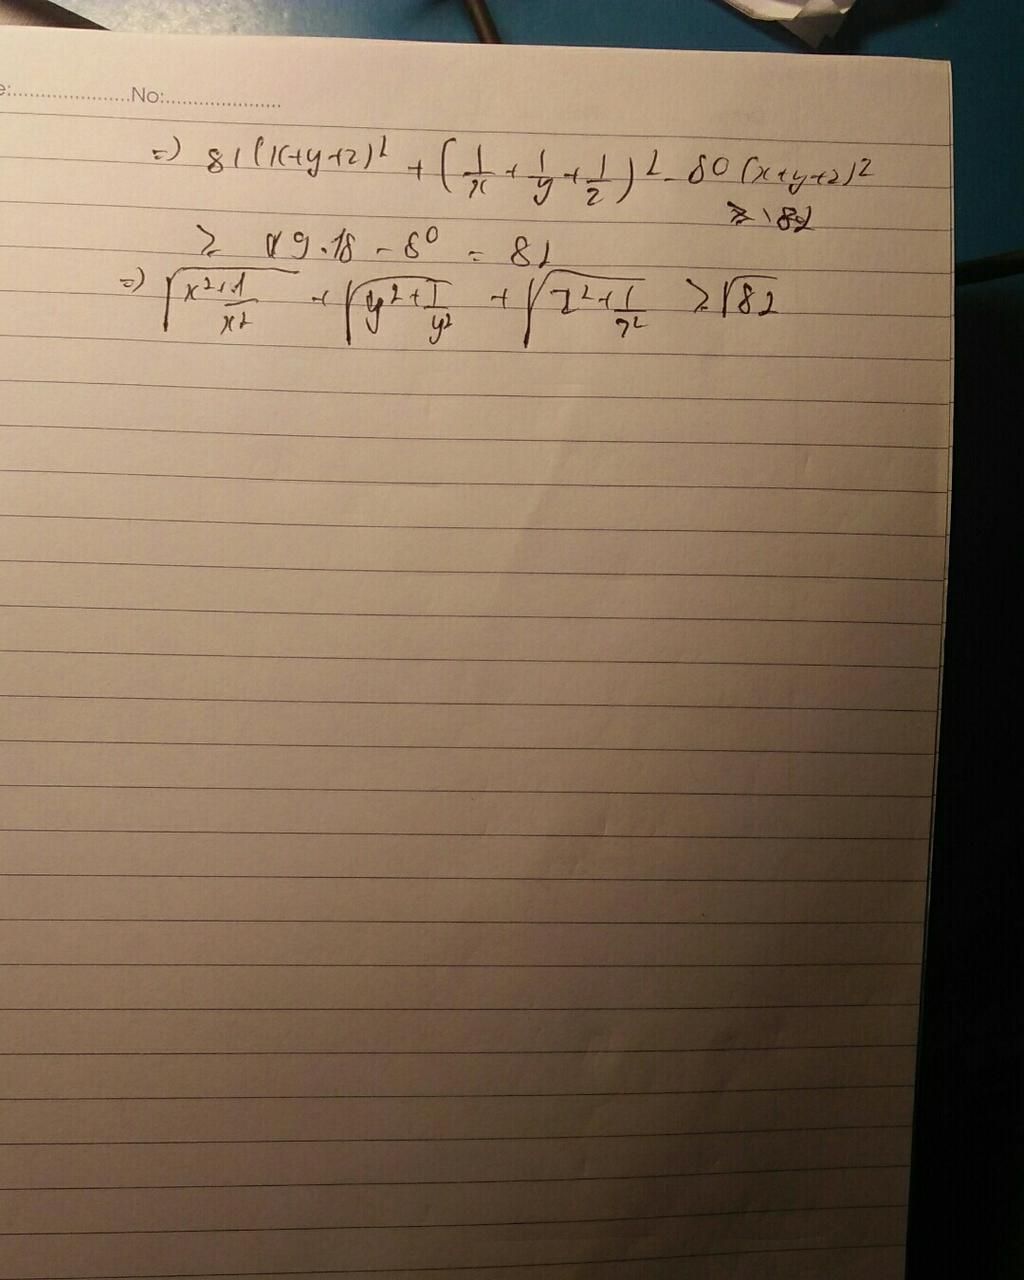 e:......................No:......................
=) 81(x+y+z)² + (1/x + 1/y + 1/z)² - 80(x+y+z)²
≥ 82
≥ 9.18 - 80 = 82
=) √(x²+1/x²) + √(y²+1/y²) + √(z²+1/z²) ≥ √82